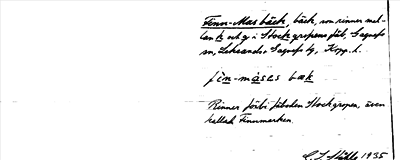 Finn-Mas bäck, bäck, som rinner mel-
lan k och g i Stockgropens fäb, Sagmyra
sn, Leksands Sagmyra by, Kopp. l.
fin-máses bæk
Rinner förbi fäboden Stockgropen, även
kallad Finnmarken.
1935